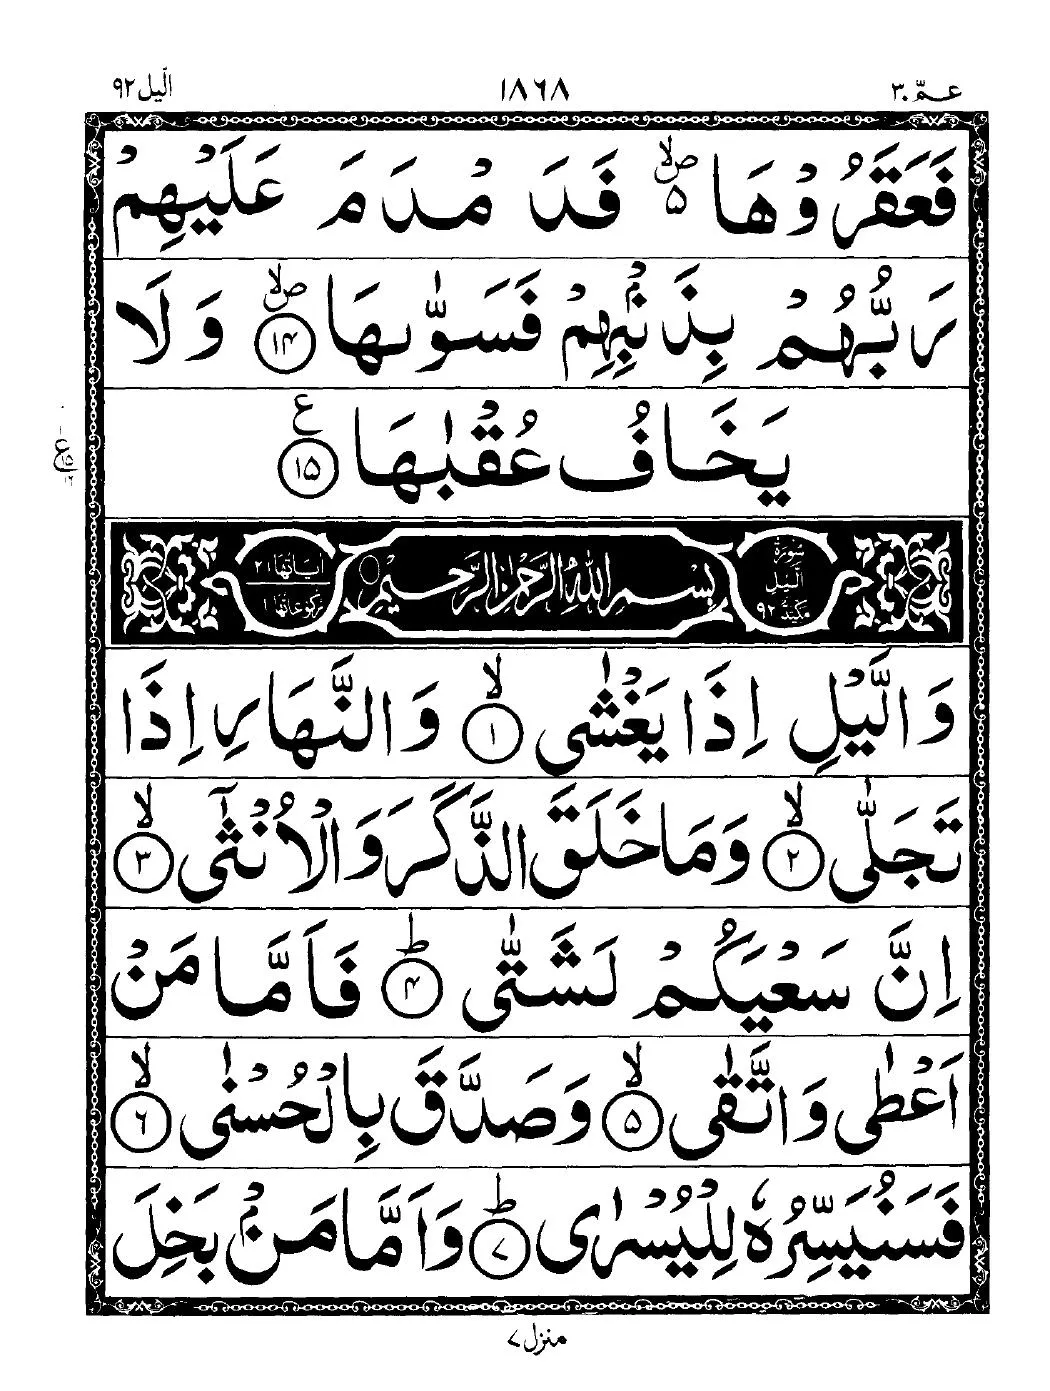 عـمّ ٣٠ ١٨٦٨ الّيل ٩٢
فَعَقَرُوْهَا ۪ۙ۵ فَدَ مْدَمَ عَلَيْهِمْ
رَبُّهُمْ بِذَنْۢبِهِمْ فَسَوّٰىهَا ۪ۙ﴿۱۴﴾ وَلَا
يَخَافُ عُقْبٰهَا ﴿۱۵﴾ ع
ع ۱ ۱۵ ۱۶
سُوْرَةُ الَّيْلِ مَكِّيَّةٌ ٩٢ بِسْمِ اللّٰهِ الرَّحْمٰنِ الرَّحِيْمِ اٰيَاتُهَا ٢١ رُكُوْعَاتُهَا ١
وَالَّيْلِ اِذَا يَغْشٰى ۙ﴿۱﴾ وَالنَّهَارِ اِذَا
تَجَلّٰى ۙ﴿۲﴾ وَمَا خَلَقَ الذَّكَرَ وَالْاُنْثٰٓى ۙ﴿۳﴾
اِنَّ سَعْيَكُمْ لَشَتّٰى ؕ﴿۴﴾ فَاَمَّا مَنْ
اَعْطٰى وَاتَّقٰى ۙ﴿۵﴾ وَصَدَّقَ بِالْحُسْنٰى ۙ﴿۶﴾
فَسَنُيَسِّرُهٗ لِلْيُسْرٰى ؕ﴿۷﴾ وَاَمَّا مَنْۢ بَخِلَ
منزل ۷